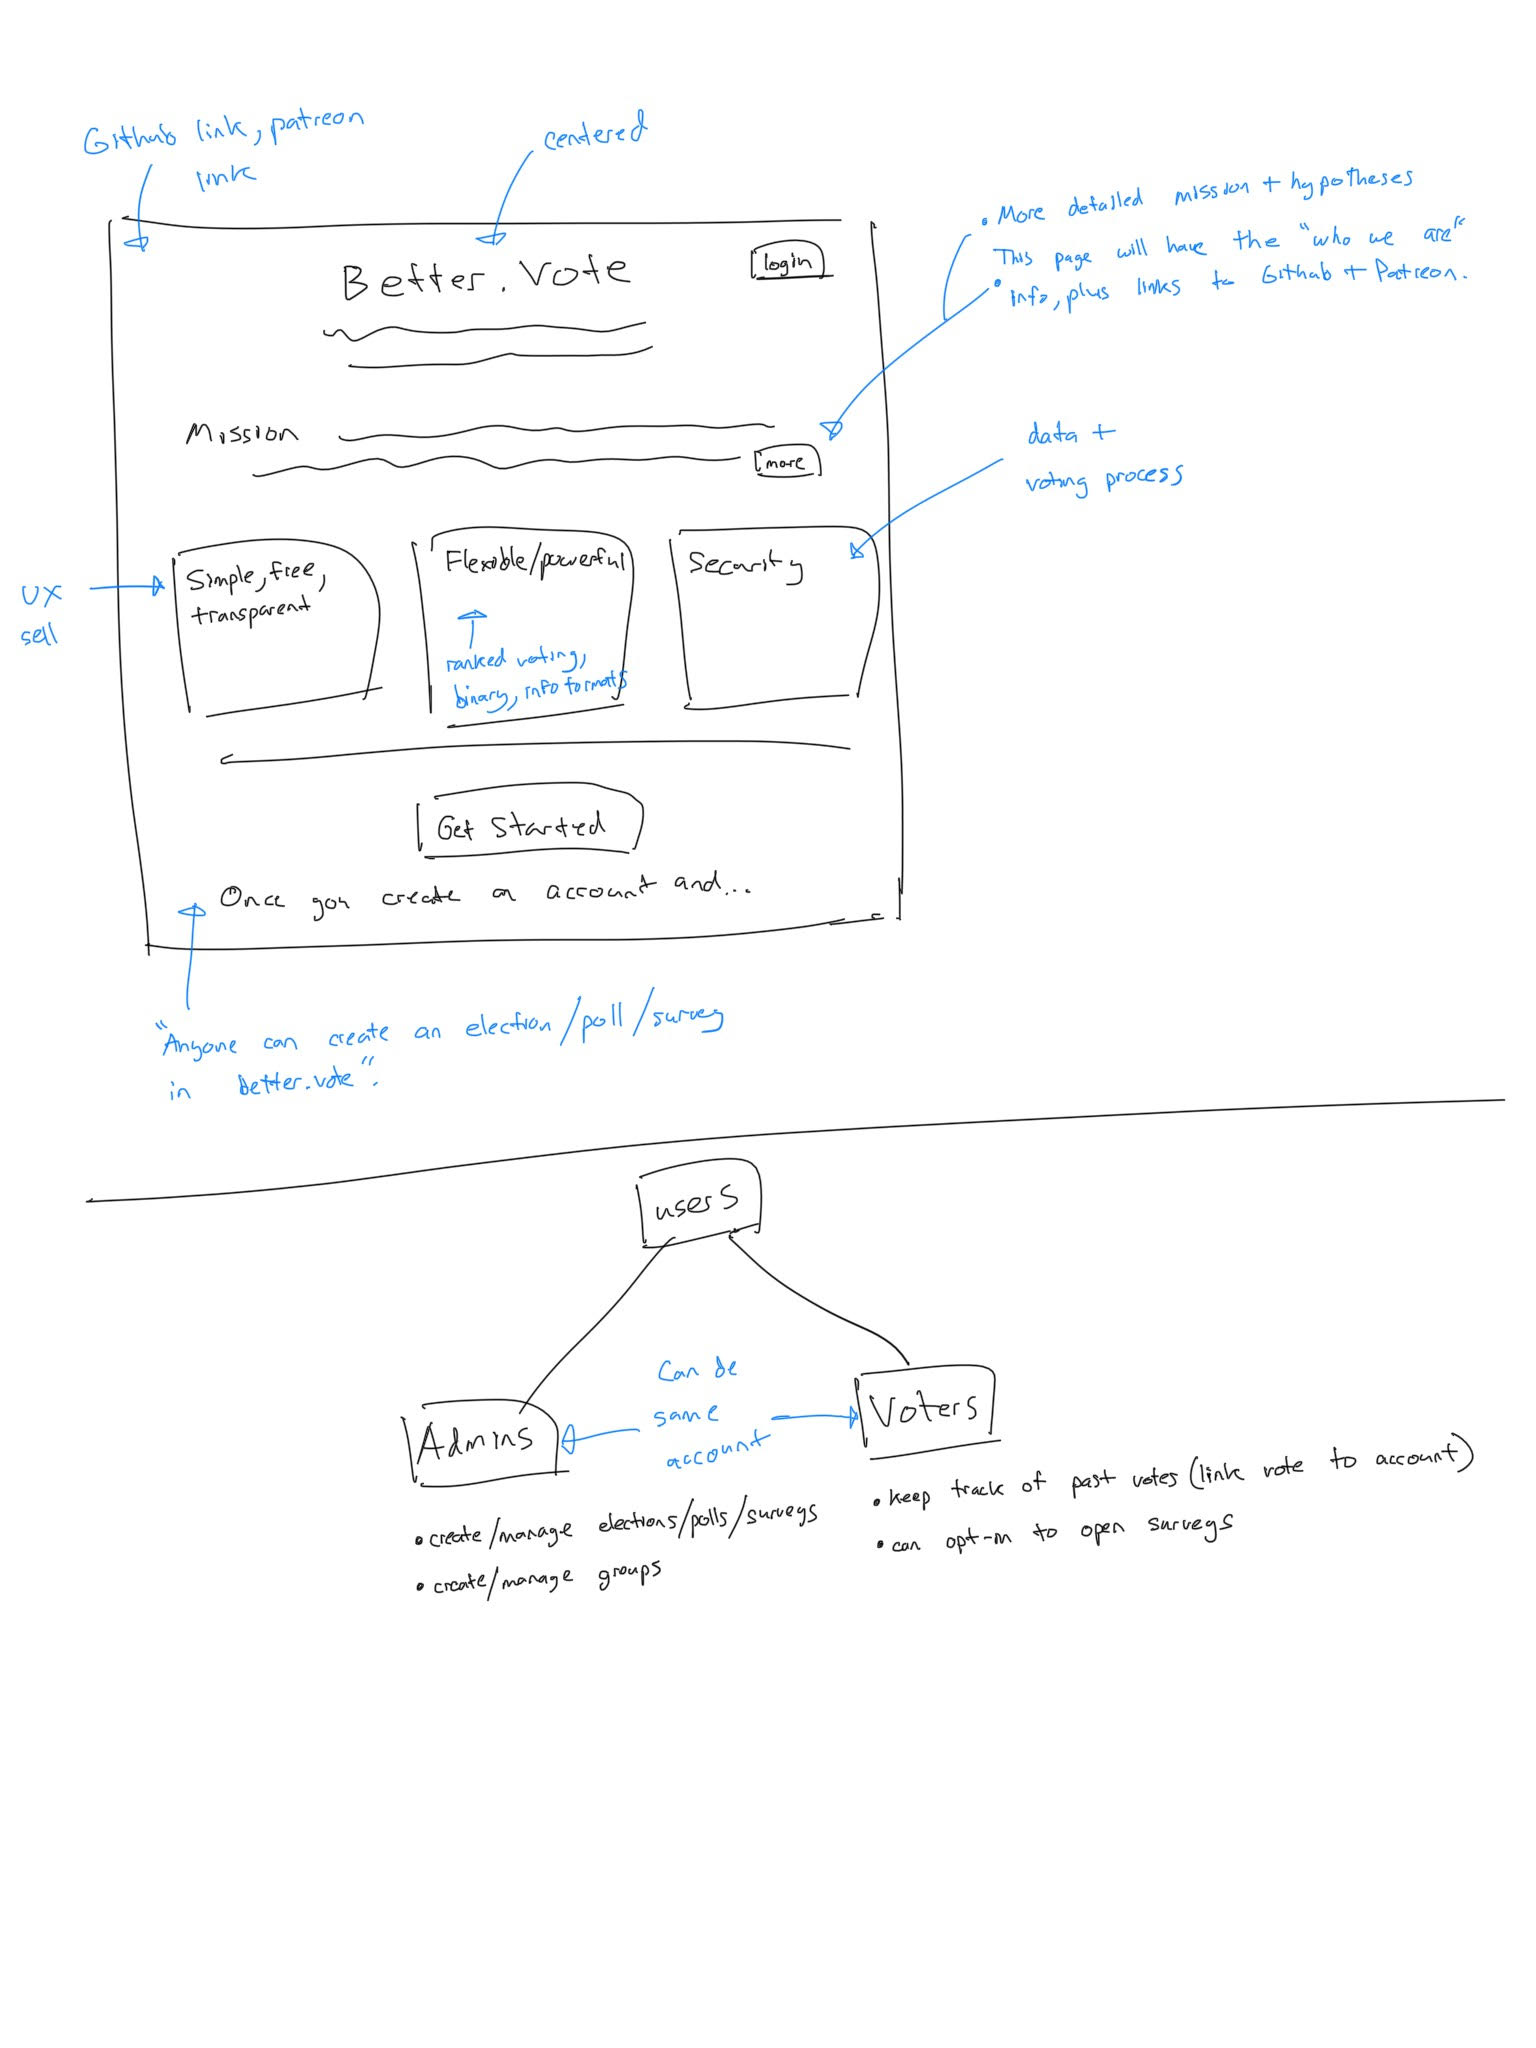 Github link, patreon
link
centered
Better.Vote
login
• More detailed mission + hypotheses
This page will have the "who we are"
• info, plus links to Github + Patreon.
Mission
more
data +
voting process
UX
sell
Simple, free,
transparent
Flexible/powerful
ranked voting,
binary, info formats
Security
Get Started
Once you create an account and...
"Anyone can create an election/poll/survey
in better.vote".
users
Can be
same
account
Admins
Voters
• create/manage elections/polls/surveys
• create/manage groups
• keep track of past votes (link vote to account)
• can opt-in to open surveys